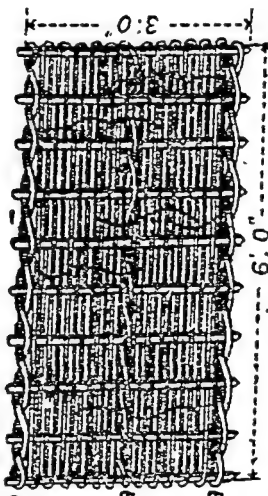 3'.0"
6'.0"